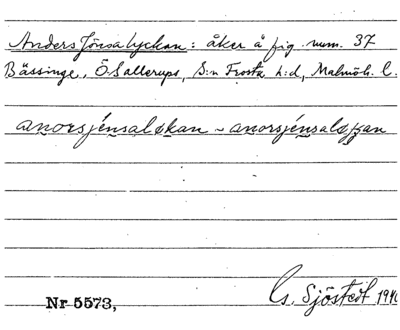 Anders Jönsalyckan: åker å fig. num. 37
Bässinge, Ö Sallerups, S:n Frosta h:d, Malmöh. l.
anorsjénsaløkan ~ anorsjénsaløkan
Nr 5573,
G. Sjöstedt 1940